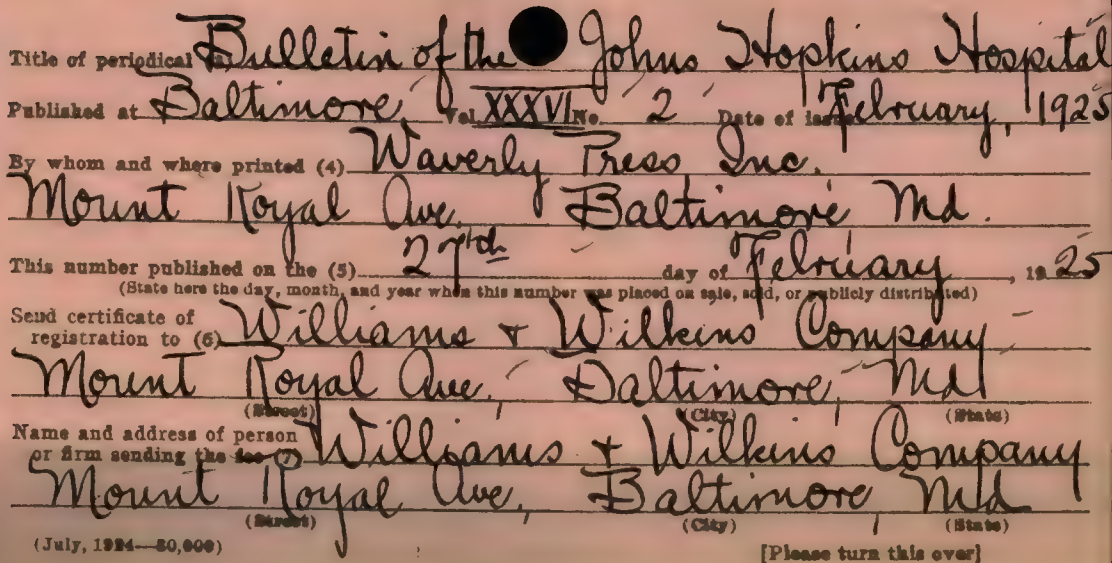 Title of periodical Bulletin of the Johns Hopkins Hospital
Published at Baltimore, Vol. XXXVI No. 2 Date of issue February, 1925
By whom and where printed (4) Waverly Press, Inc.
Mount Royal Ave. Baltimore, Md.
This number published on the (5) 27th day of February, 1925
(State here the day, month, and year when this number was placed on sale, sold, or publicly distributed)
Send certificate of
registration to (6) Williams + Wilkins Company
Mount Royal Ave., Baltimore, Md
(Street) (City) (State)
Name and address of person
or firm sending the fee (7) Williams + Wilkins Company
Mount Royal Ave., Baltimore, Md
(Street) (City) (State)
(July, 1924—80,000) [Please turn this over]